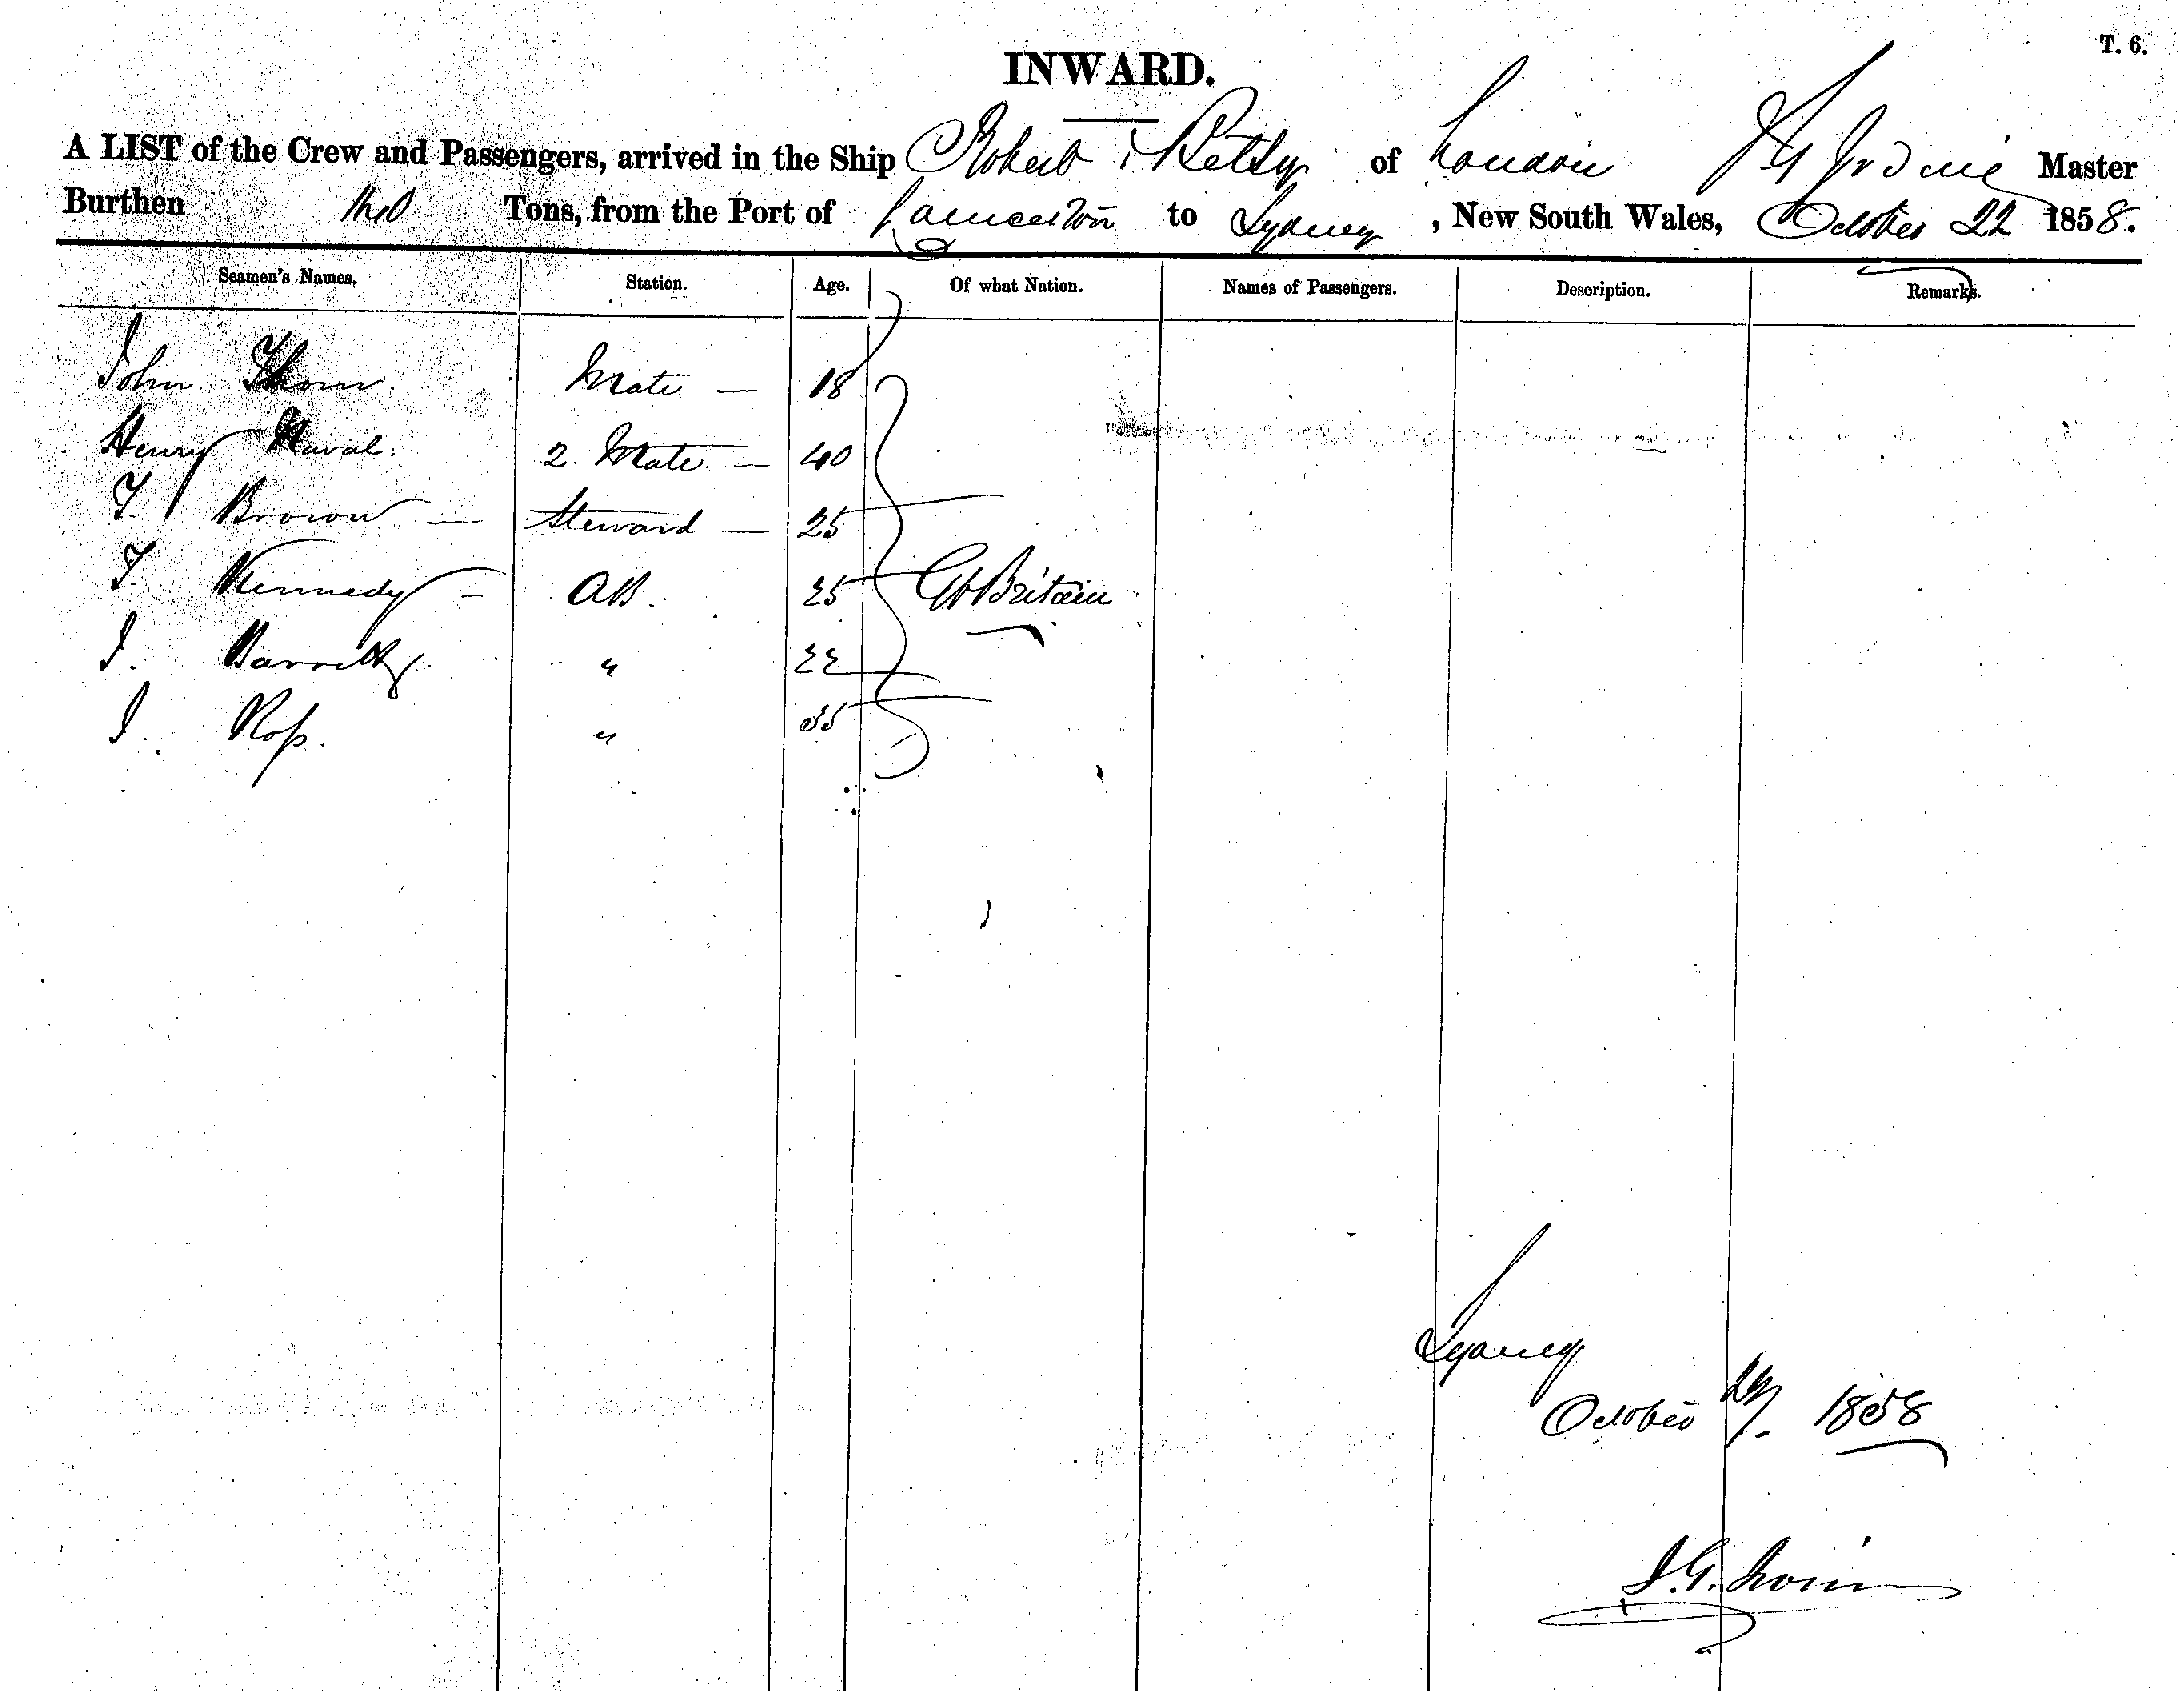 T. 6.
INWARD.
A LIST of the Crew and Passengers, arrived in the Ship Robert & Betsy of London J G Irvine Master
Burthen Tons, from the Port of Launceston to Sydney, New South Wales, October 22 1858.
Seamen's Names, Station. Age. Of what Nation. Names of Passengers. Description. Remarks.
John Thom Mate — 18
Henry Naval 2 Mate — 40
T. Brown — Steward — 25
T. Kennedy — AB. 25 Gt Britain
J. Barrett " 22
J. Ross. " 35
Sydney
October 1858
J. G. Irvine